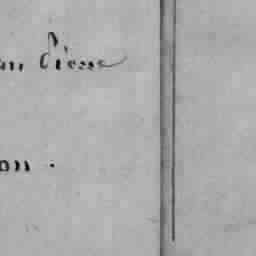 an Pierre
on .